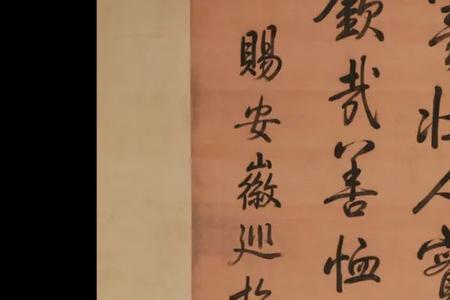 人
欽哉善恤
賜安徽巡